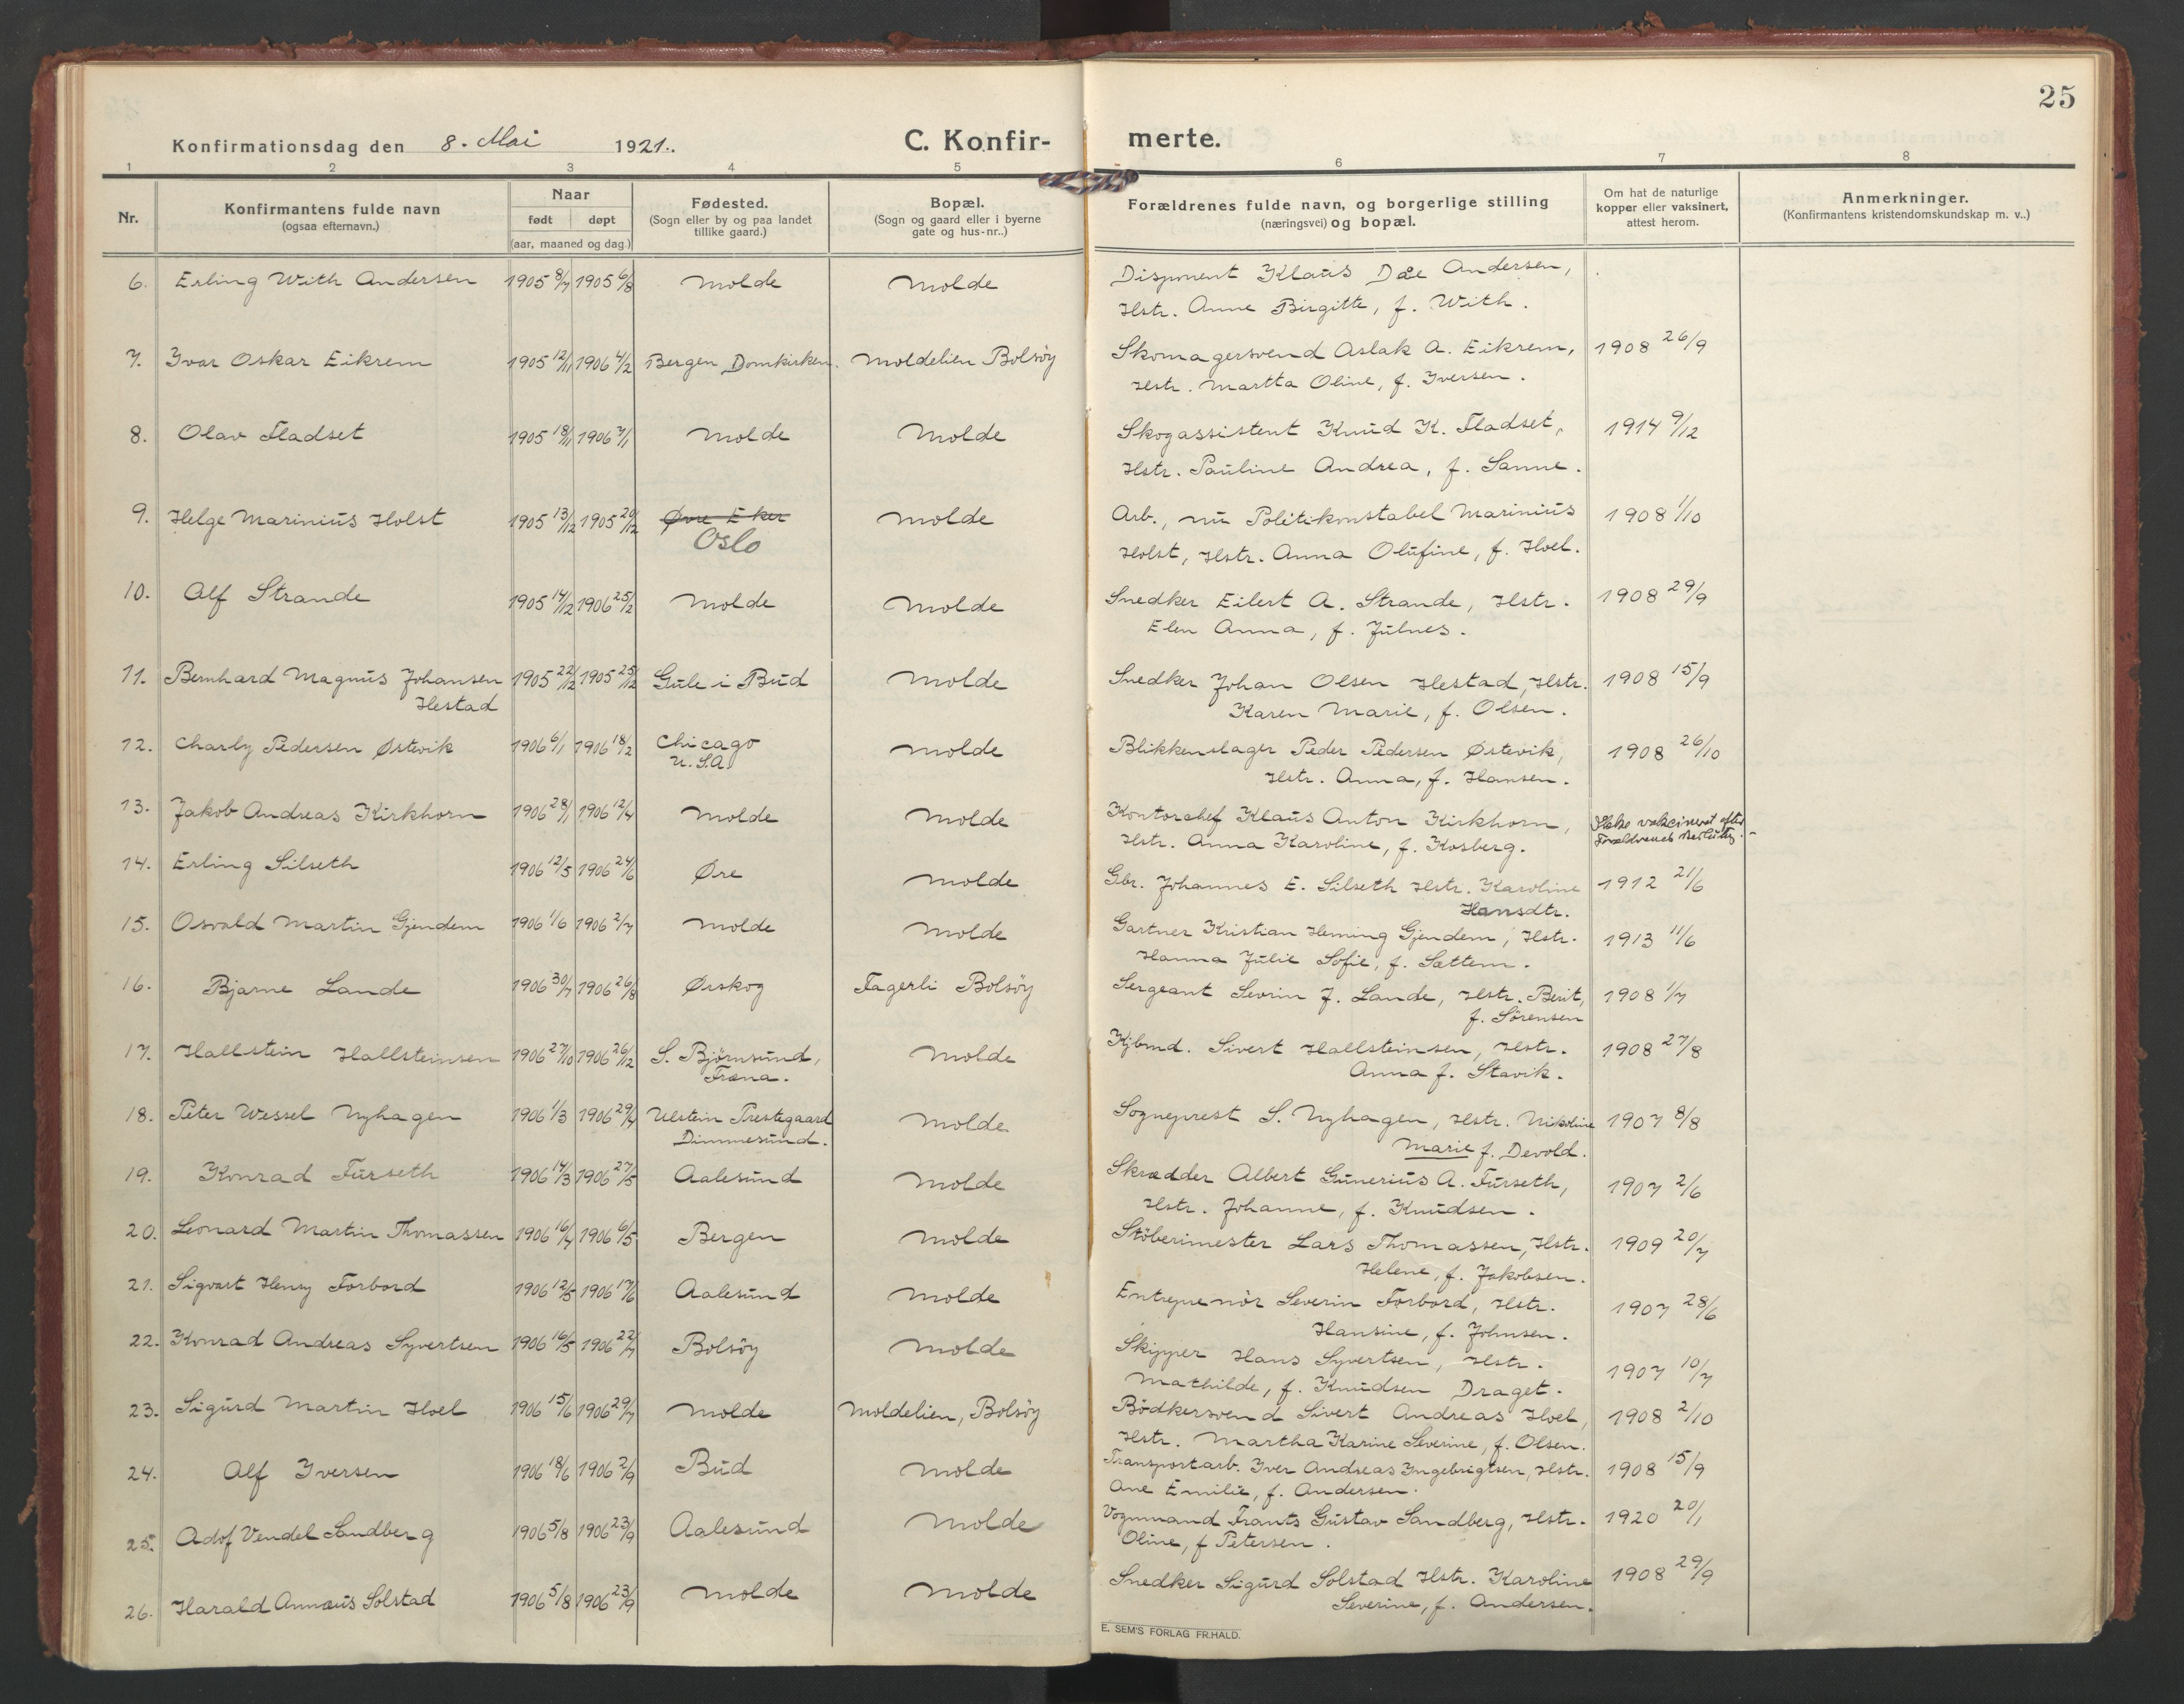 25
Konfirmationsdag den 8. Mai 1921.
C. Konfir- merte.
1 2 3 4 5 6 7 8
Nr.
Konfirmantens fulde navn
(ogsaa efternavn.)
Naar
født døpt
(aar, maaned og dag.)
Fødested.
(Sogn eller by og paa landet
tillike gaard.)
Bopæl.
(Sogn og gaard eller i byerne
gate og hus-nr..)
Forældrenes fulde navn, og borgerlige stilling
(næringsvei) og bopæl.
Om hat de naturlige
kopper eller vaksinert,
attest herom.
Anmerkninger.
(Konfirmantens kristendomskundskap m. v..)
6. Erling With Andersen 1905 8/7 1905 6/8 Molde Molde Disponent Klaus Dåe Andersen,
Hstr. Anne Birgitte, f. With.
7. Ivar Oskar Eikrem 1905 12/11 1906 4/2 Bergen Domkirken. Moldelien Bolsöy Skomagersvend Aslak A. Eikrem, 1908 26/9
Hstr. Martta Oline, f. Iversen.
8. Olav Fladset 1905 18/11 1906 7/1 Molde Molde Skogassistent Knud K. Fladset, 1914 9/12
Hstr. Pauline Andrea, f. Sanne.
9. Helge Marinius Holst 1905 13/12 1905 20/12 Øvre Eker Molde Arb., nu Politikonstabel Marinius 1908 1/10
Oslo Holst, Hstr. Anna Olufine, f. Hoel.
10. Alf Strande 1905 14/12 1906 25/2 Molde Molde Snedker Eilert A. Strande, Hstr. 1908 29/9
Elen Anna, f. Julnes.
11. Bernhard Magnus Johansen 1905 22/12 1905 25/12 Gule i Bud Molde Snedker Johan Olsen Hestad, Hstr. 1908 15/9
Hestad Karen Marie, f. Olsen.
12. Charly Pedersen Østevik 1906 6/1 1906 18/2 Chicago Molde Blikkenslager Peder Pedersen Østevik, 1908 26/10
U.S.A. Hstr. Anna, f. Hansen.
13. Jakob Andreas Kirkhorn 1906 28/1 1906 12/4 Molde Molde Kontorchef Klaus Anton Kirkhorn, Ikke vakcineret efter
Hstr. Anna Karoline, f. Kosberg. Forældrenes
14. Erling Silseth 1906 12/5 1906 24/6 Øre Molde Gbr. Johannes E. Silseth Hstr. Karoline 1912 21/6
Hansdtr.
15. Osvald Martin Gjendem 1906 1/6 1906 2/7 Molde Molde Gartner Kristian Heming Gjendem, Hstr. 1913 11/6
Hanna Julie Sofie, f. Sættem.
16. Bjarne Lande 1906 30/7 1906 26/8 Ørskog Fagerli Bolsöy Sergeant Sevrin J. Lande, Hstr. Berit, 1908 1/7
f. Sörensen
17. Hallstein Hallsteinsen 1906 27/10 1906 26/12 S. Björnsund, Molde Kjbmd. Sivert Hallsteinsen, Hstr. 1908 27/8
Fræna. Anna f. Stavik.
18. Peter Wessel Nyhagen 1906 1/3 1906 29/4 Ulstein Prestegaard Molde Sogneprest S. Nyhagen, Hstr. Nikoline 1907 8/8
Dimmesund. Marie f. Devold.
19. Konrad Furseth 1906 14/3 1906 27/5 Aalesund Molde Skrædder Albert Gunerius A. Furseth, 1907 2/6
Hstr. Johanne, f. Knudsen.
20. Leonard Martin Thomassen 1906 16/4 1906 6/5 Bergen Molde Stöberimester Lars Thomassen, Hstr. 1909 20/7
Helene, f. Jakobsen.
21. Sigvart Henry Forbord 1906 12/5 1906 17/6 Aalesund Molde Entreprenör Severin Forbord, Hstr. 1907 28/6
Hansine, f. Johnsen.
22. Konrad Andreas Syvertsen 1906 16/5 1906 22/7 Bolsöy Molde Skipper Hans Syvertsen, Hstr. 1907 10/7
Mathilde, f. Knudsen Draget.
23. Sigurd Martin Hoel 1906 15/6 1906 29/7 Molde Moldelien, Bolsöy Bödkersvend Sivert Andreas Hoel, 1908 2/10
Hstr. Martha Karine Severine, f. Olsen.
24. Alf Iversen 1906 18/6 1906 2/9 Bud Molde Transportarb. Iver Andreas Ingebrigtsen, Hstr. 1908 15/9
Ane Emilie, f. Andersen.
25. Adof Vendel Sandberg 1906 5/8 1906 23/9 Aalesund Molde Vognmand Frants Gustav Sandberg, Hstr. 1920 20/1
Oline, f Petersen.
26. Harald Annæus Solstad 1906 5/8 1906 23/9 Molde Molde Snedker Sigurd Solstad Hstr. Karoline 1908 29/9
Severine, f. Andersen.
E. SEM'S FORLAG FR.HALD.